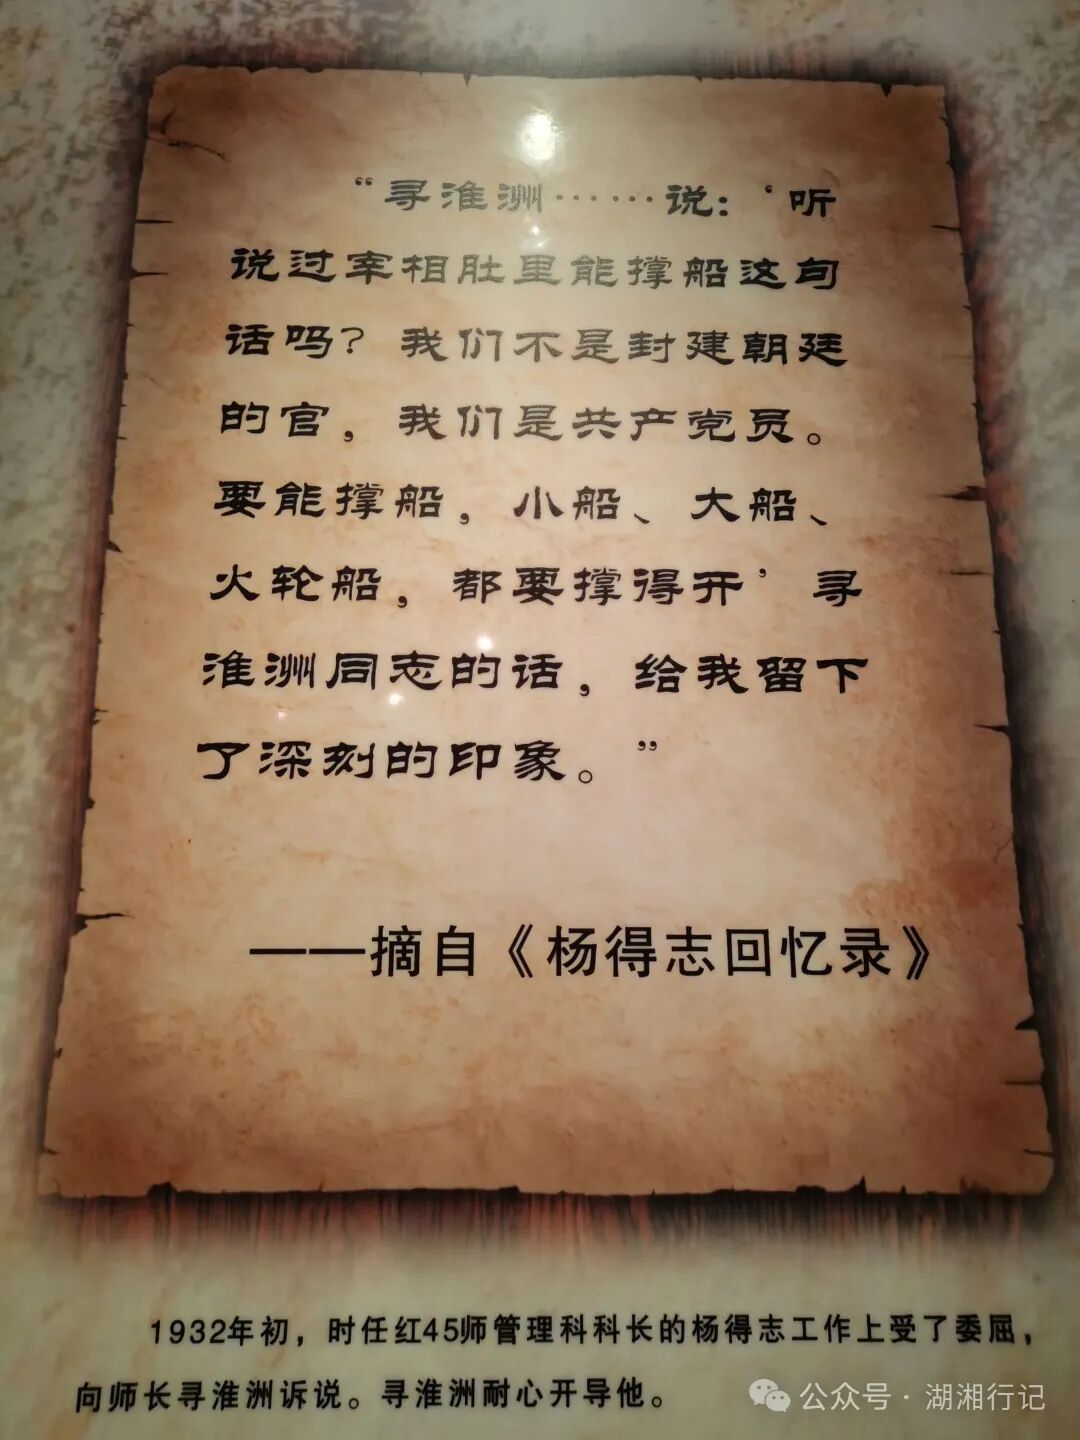 “寻淮洲……说：‘听
说过宰相肚里能撑船这句
话吗？我们不是封建朝廷
的官，我们是共产党员。
要能撑船，小船、大船、
火轮船，都要撑得开’寻
淮洲同志的话，给我留下
了深刻的印象。”
——摘自《杨得志回忆录》
1932年初，时任红45师管理科科长的杨得志工作上受了委屈，
向师长寻淮洲诉说。寻淮洲耐心开导他。
公众号·湖湘行记